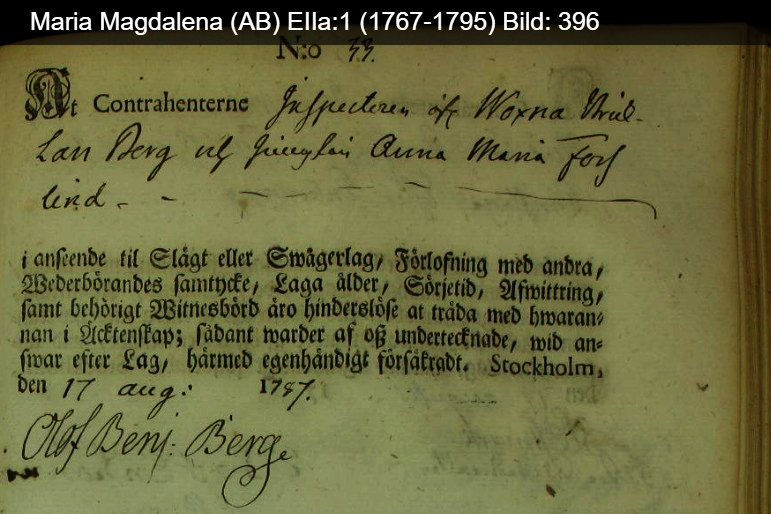 Maria Magdalena (AB) EIIa:1 (1767-1795) Bild: 396
N:o 33.
At Contrahenterne Inspectoren öfr Woxna
Lars Berg och Anna Maria Fors
lind
i anseende til Slägt eller Swågerlag, Förlofning med andra,
Wederbörandes samtycke, Laga ålder, Sörjetid, Afwittring,
samt behörigt Witnesbörd äro hinderslöse at träda med hwaran-
nan i Äcktenskap; sådant warder af oß undertecknade, wid an-
swar efter Lag, härmed egenhändigt försäkradt. Stockholm,
den 17 aug: 1787.
Olof Benj: Berg